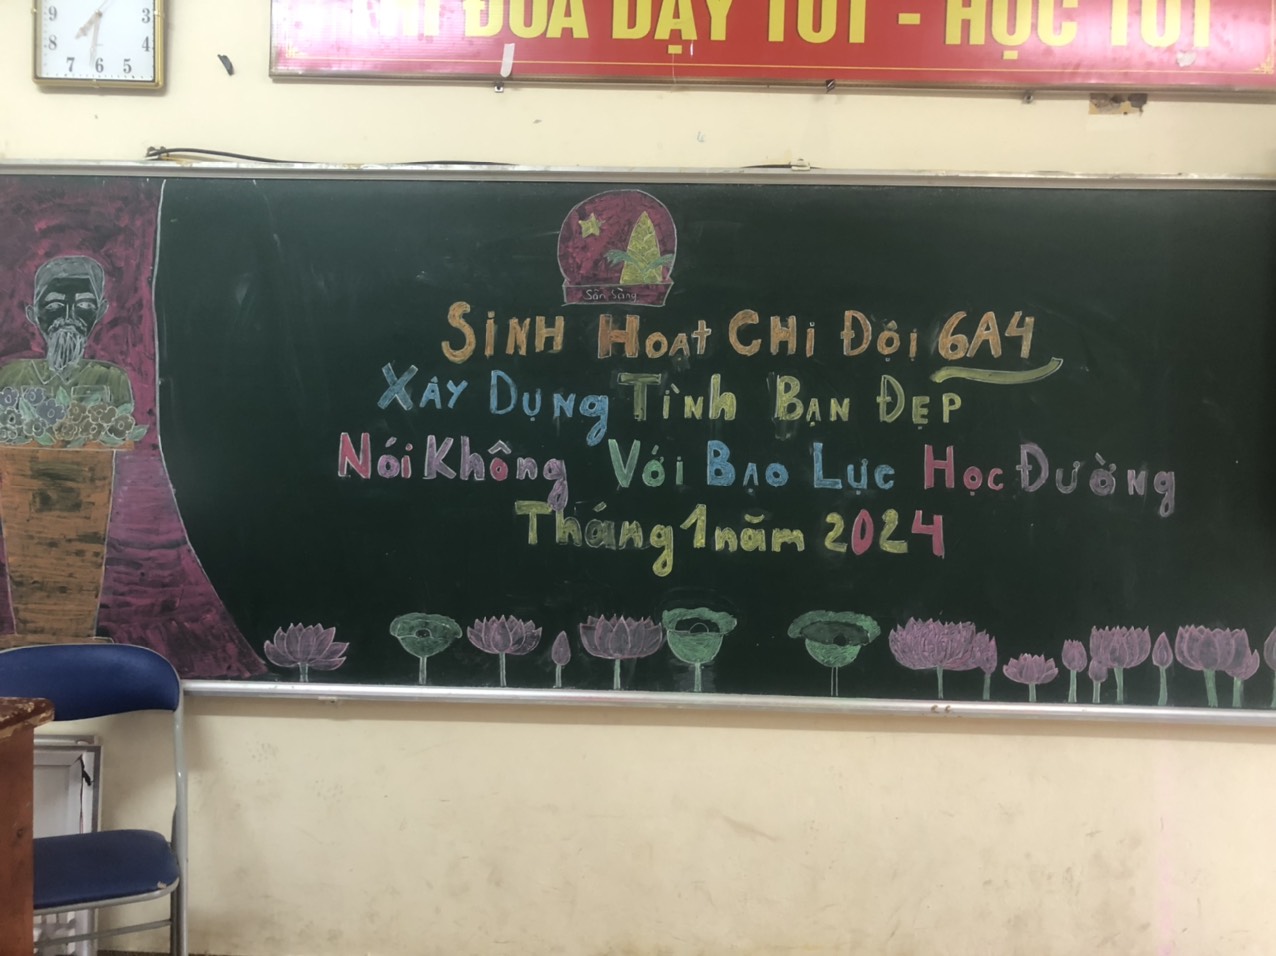 ĐUA DẠY TỐT - HỌC TỐT
9 3
8 4
7 6 5
Sẵn Sàng
SINH HOẠT CHI ĐỘI 6A4
XÂY DỤNg TÌNh BẠN ĐẸP
Nói Không Với BẠO LỰC HỌC ĐƯỜNg
Tháng 1 năm 2024